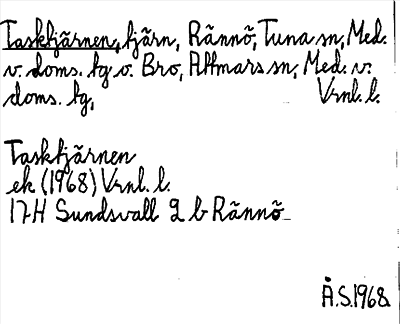 Tasktjärnen, tjärn, Rännö, Tuna sn, Med.
v. doms. tg o. Bro, Attmars sn, Med. v.
doms. tg, Vrnl. l.
Tasktjärnen
ek (1968) Vrnl. l.
17H Sundsvall 2 b Rännö
Å.S. 1968